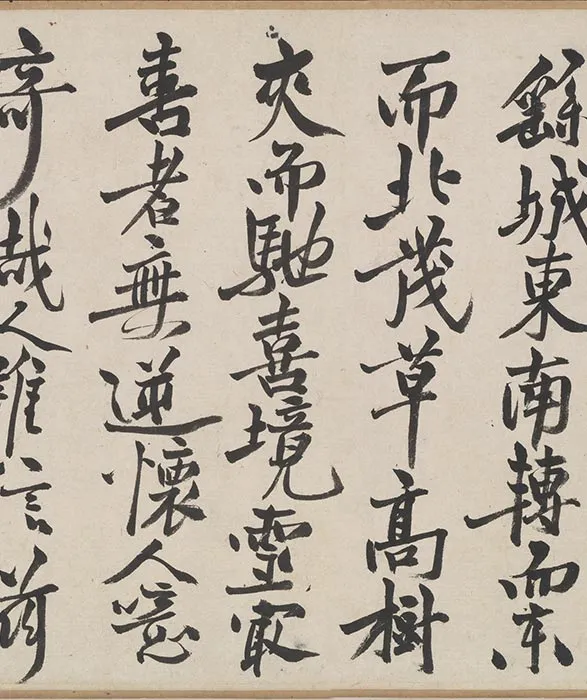 繇城東南轉而東
而北茂草高樹
夾而馳喜境靈冣
善者無逆懷人意
奇哉人誰言